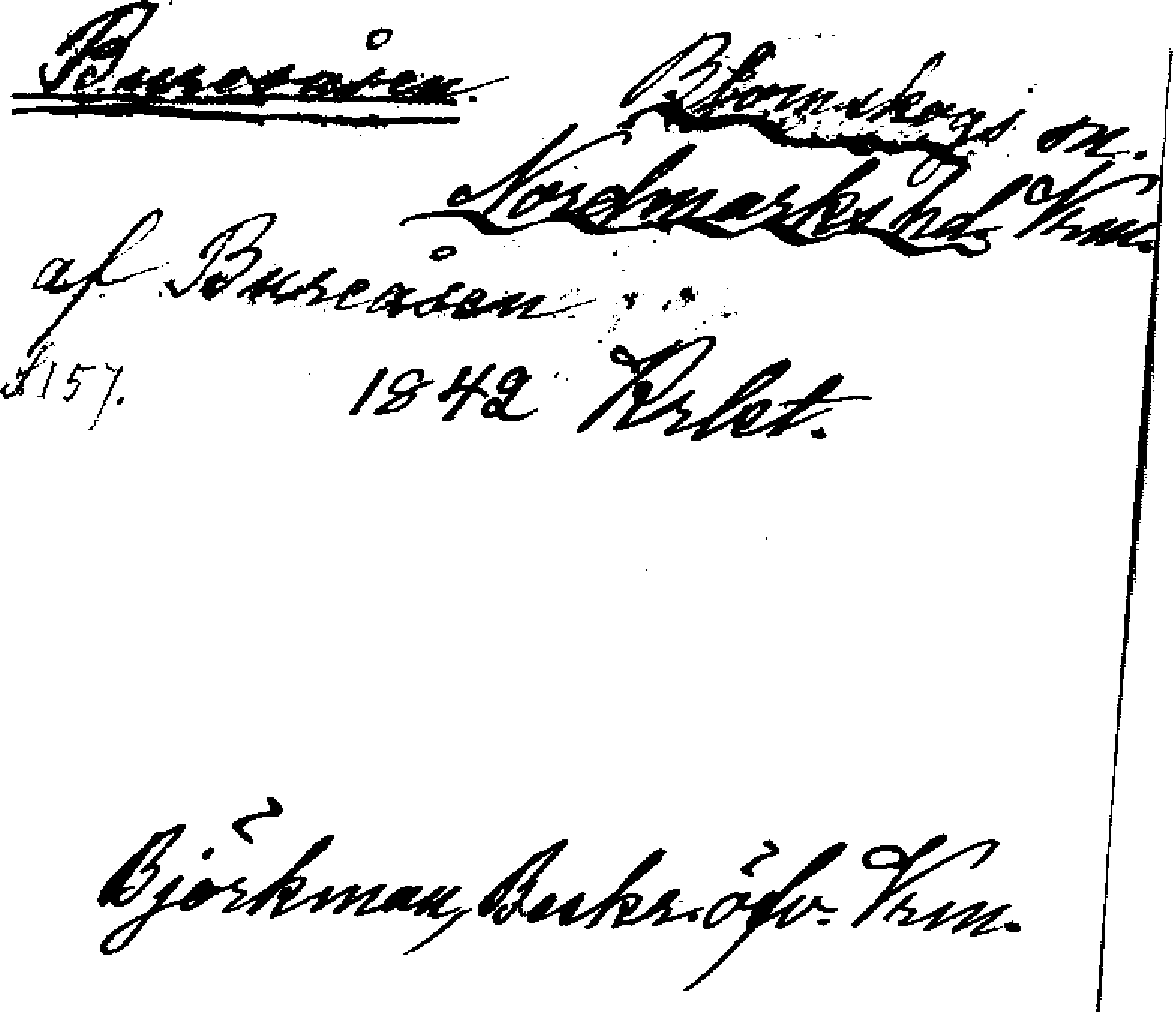 Bureåsen. Blomskogs sn.
Nordmarks hd. Vrm.
af Bureåsen
S 157. 1842 Krlet.
Björkman, Beskr. öfv. Vrm.